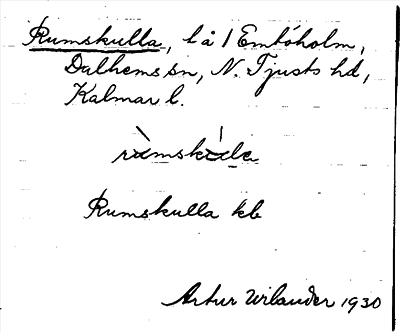 Rumskulla, l å / Emtöholm,
Dalhems sn, N. Tjusts hd,
Kalmar l.
Rumskulla kb
Artur Wilander 1930